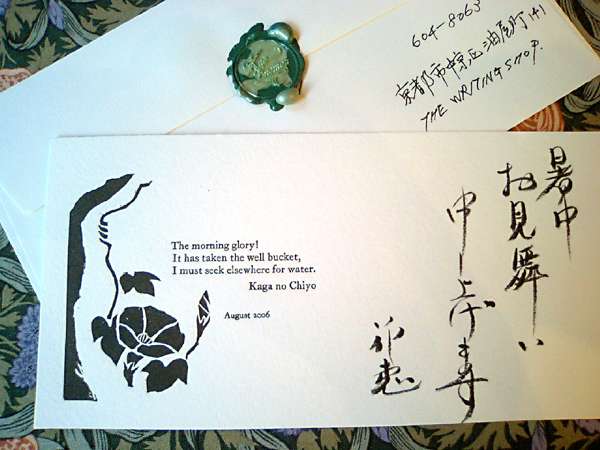 604-8063
京都市中京区油屋町
THE WRITING SHOP.
The morning glory!
It has taken the well bucket,
I must seek elsewhere for water.
Kaga no Chiyo
August 2006
暑中
お見舞い
申し上げます